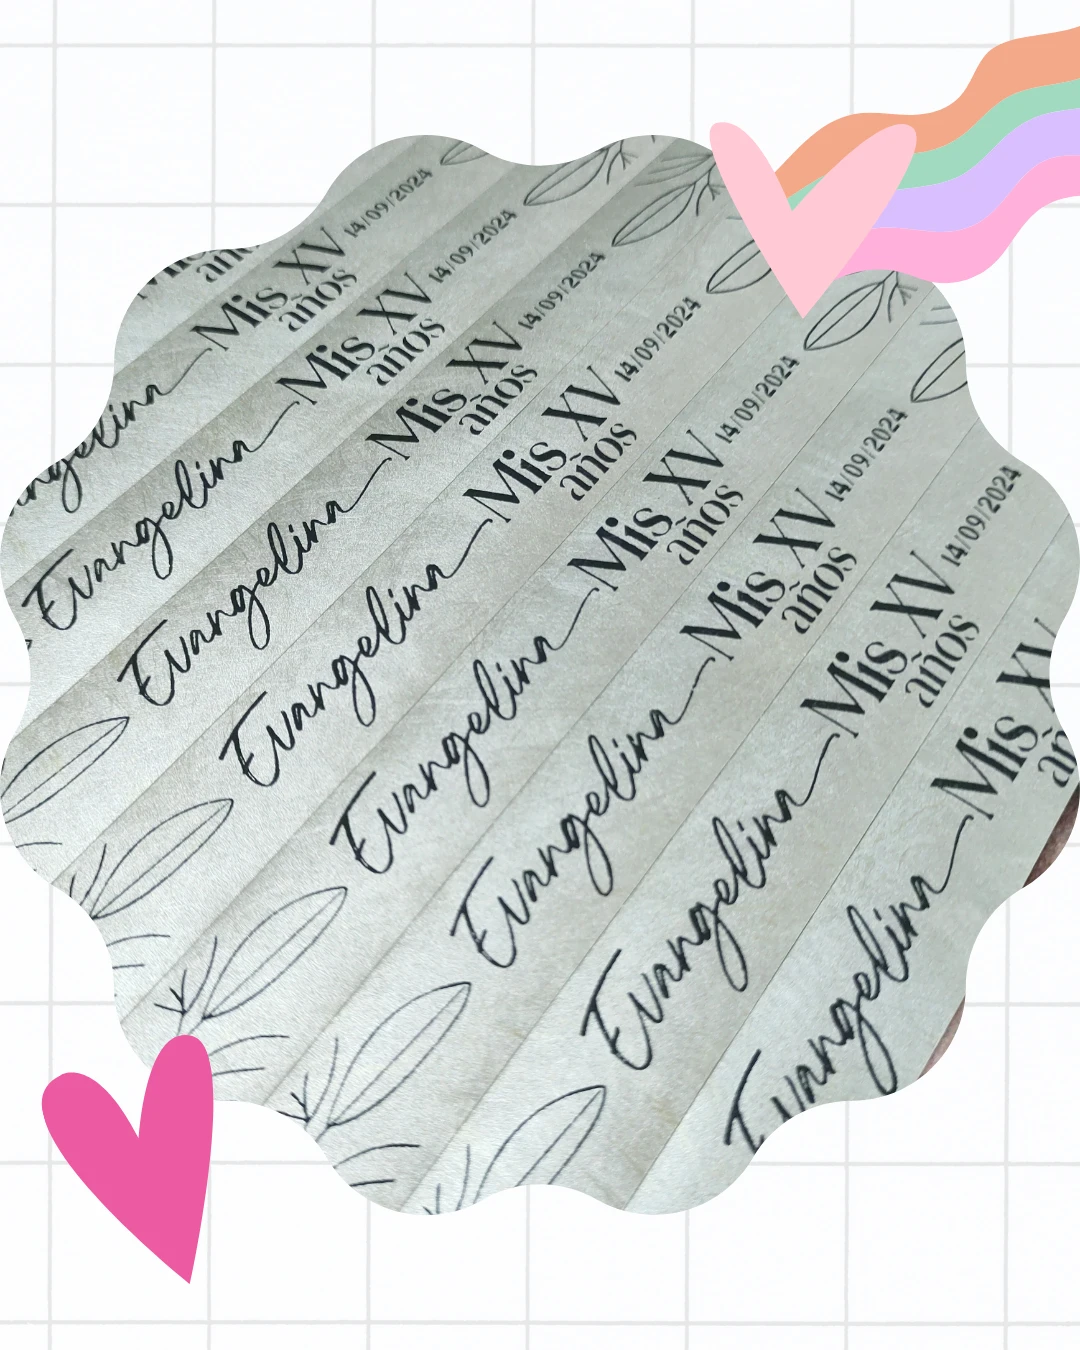 Mis XV
años
14/09/2024
Evangelina
Mis XV
años
14/09/2024
Evangelina
Mis XV
años
14/09/2024
Evangelina
Mis XV
años
14/09/2024
Evangelina
Mis XV
años
14/09/2024
Evangelina
Mis XV
años
14/09/2024
Evangelina
Mis XV
años
14/09/2024
Evangelina
Mis